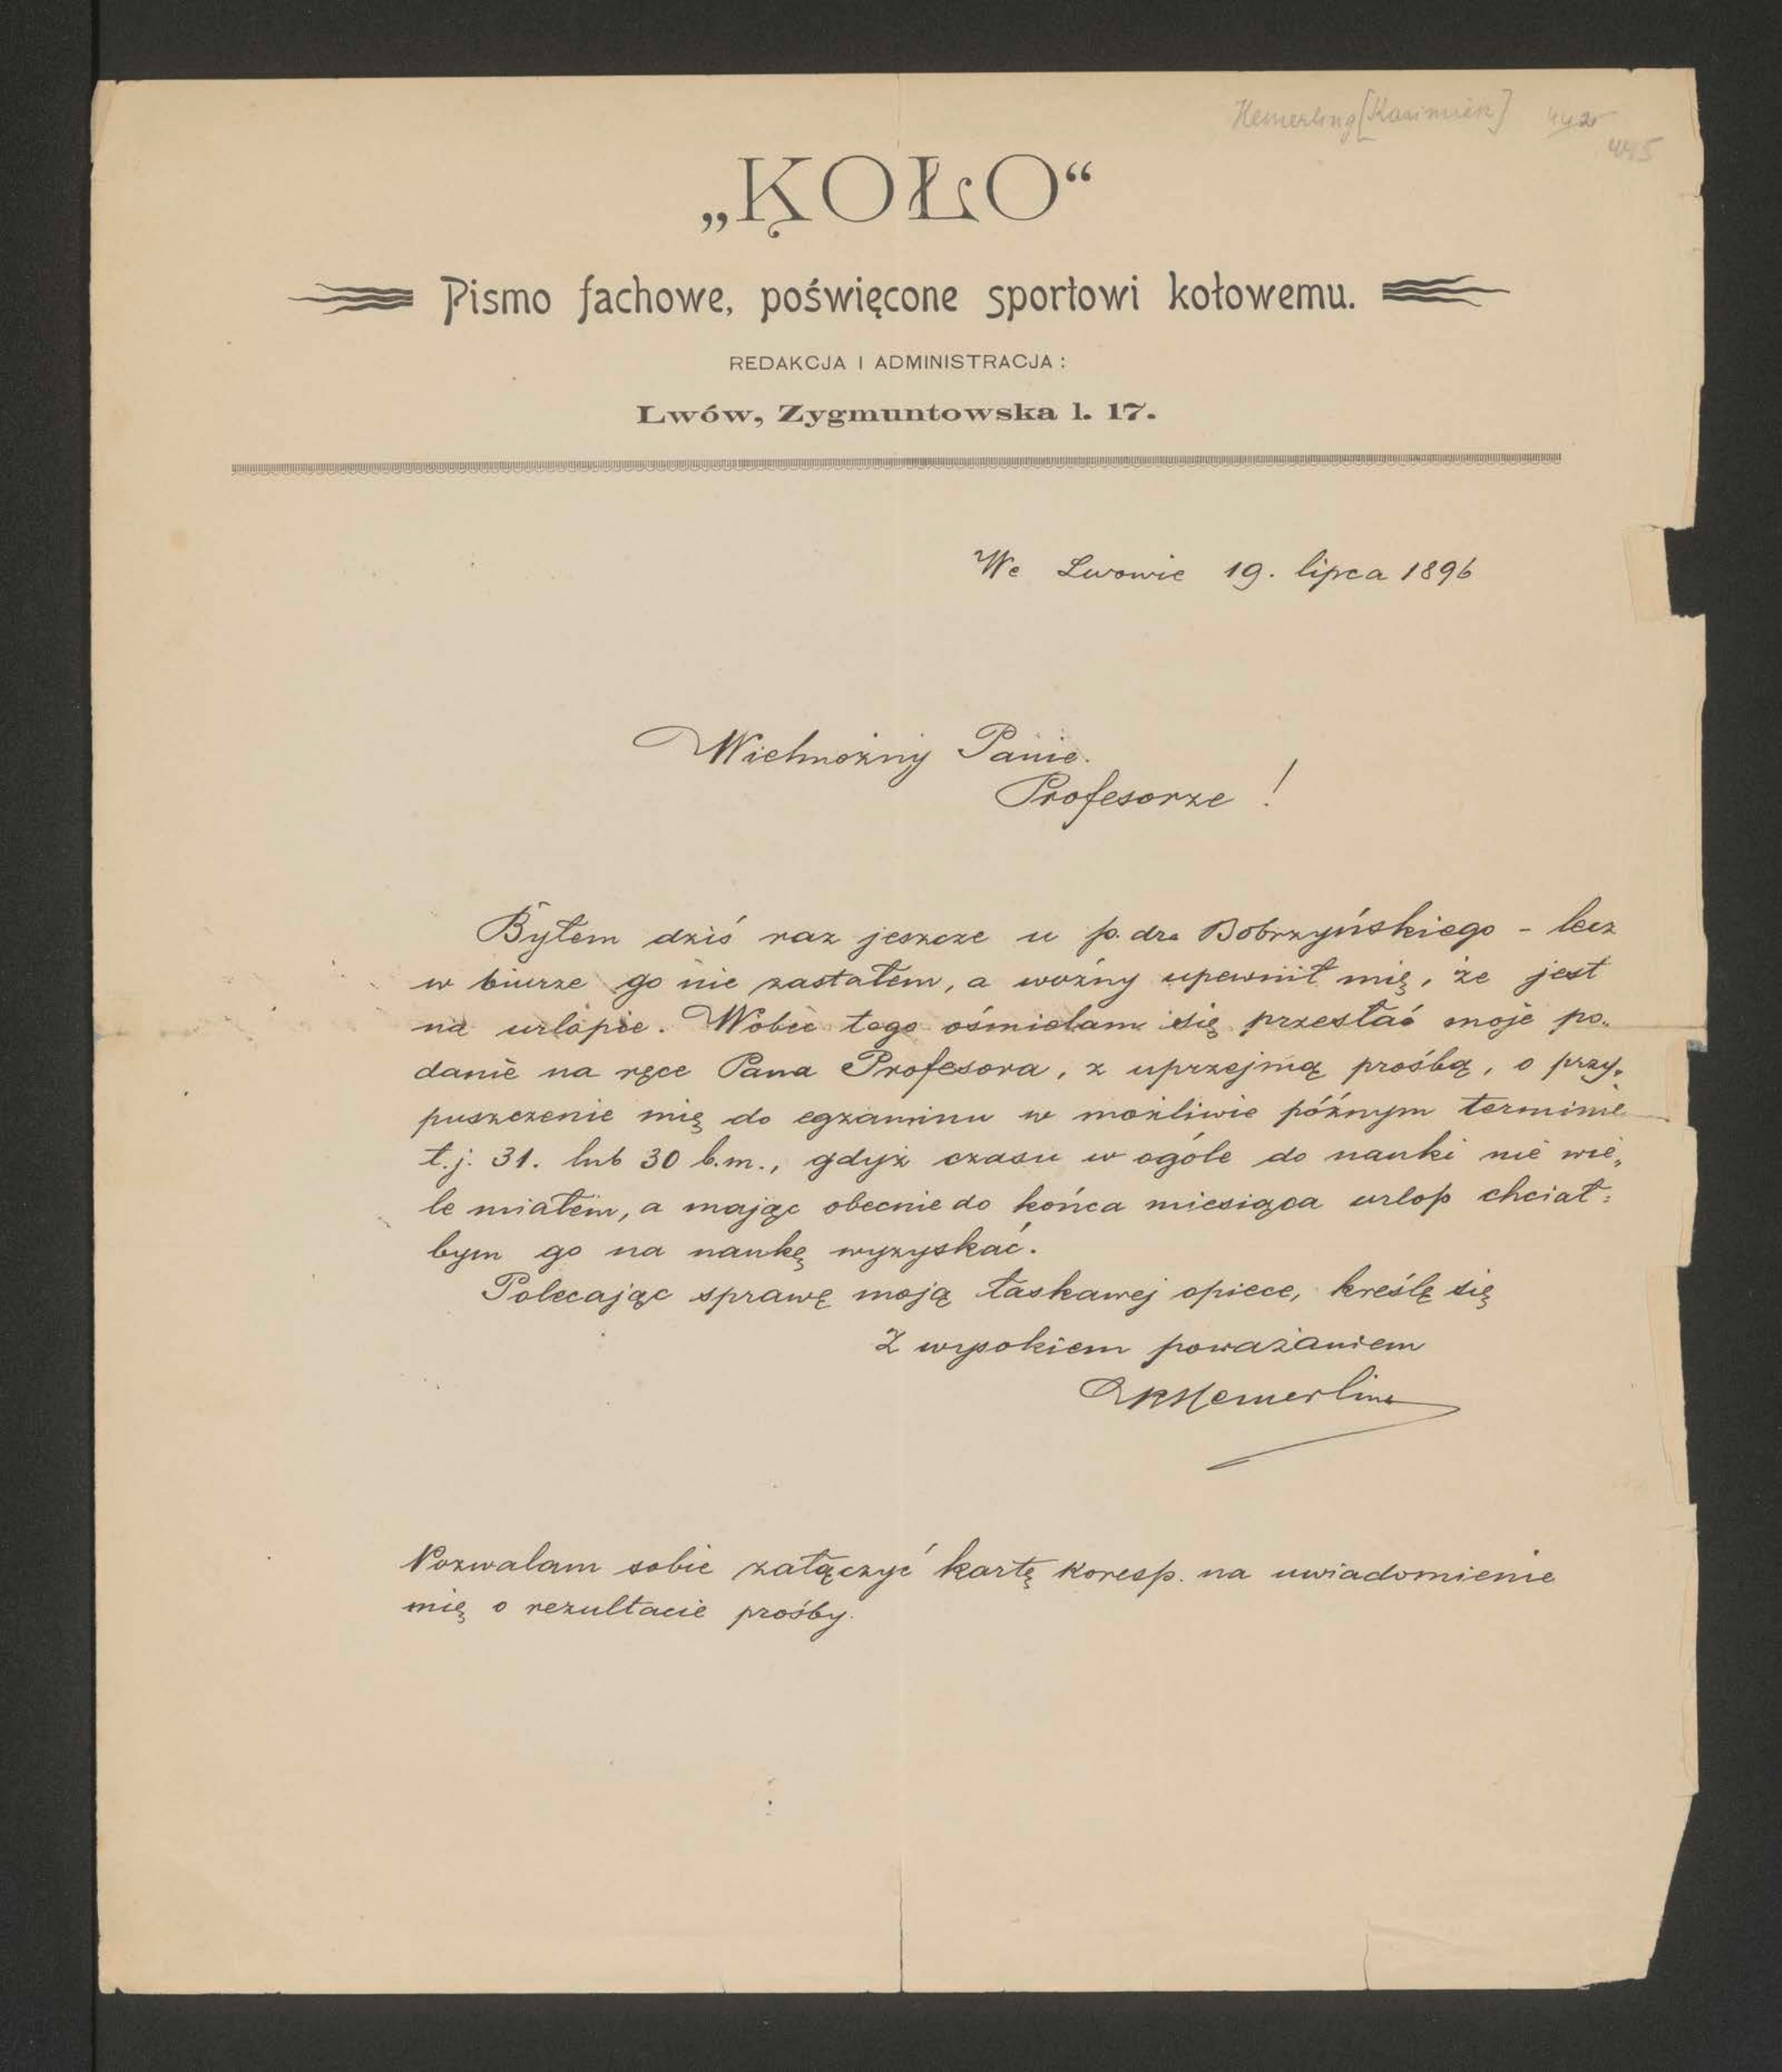 Hemerling [Kazimierz]
445
„KOŁO“
Pismo fachowe, poświęcone sportowi kołowemu.
REDAKCJA I ADMINISTRACJA :
Lwów, Zygmuntowska l. 17.
We Lwowie 19. lipca 1896
Wielmożny Panie
Profesorze !
Byłem dziś raz jeszcze u p. dra Bobrzyńskiego - lecz
w biurze go nie zastałem, a woźny upewnił mię, że jest
na urlopie. Wobec tego ośmielam się przesłać moje po„
danie na ręce Pana Profesora, z uprzejmą prośbą, o przy„
puszczenie mię do egzaminu w możliwie późnym terminie
t.j. 31. lub 30 b.m., gdyż czasu w ogóle do nauki nie wie„
le miałem, a mając obecnie do końca miesiąca urlop chciał:
bym go na naukę wyzyskać.
Polecając sprawę moją łaskawej opiece, kreślę się
Z wysokiem poważaniem
KHemerling
Pozwalam sobie załączyć kartę koresp. na uwiadomienie
mię o rezultacie prośby.